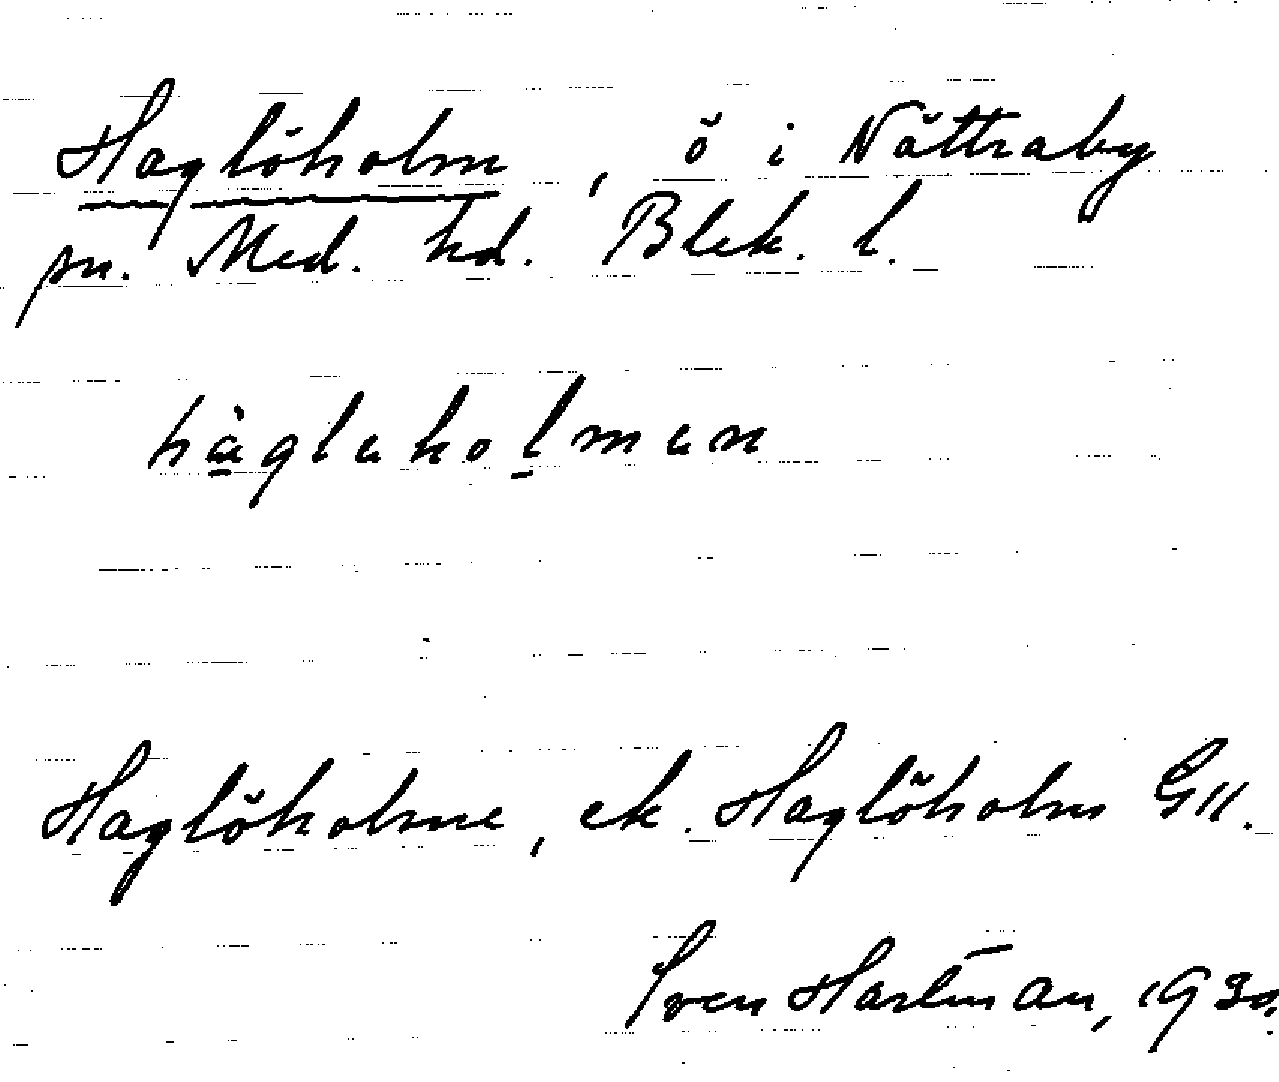 Haglöholm, ö i Nättraby
sn. Med. hd. Blek. l.
hàgleholmen
Haglöholme, ek. Haglöholm Gll.
Sven Hartman, 1930.